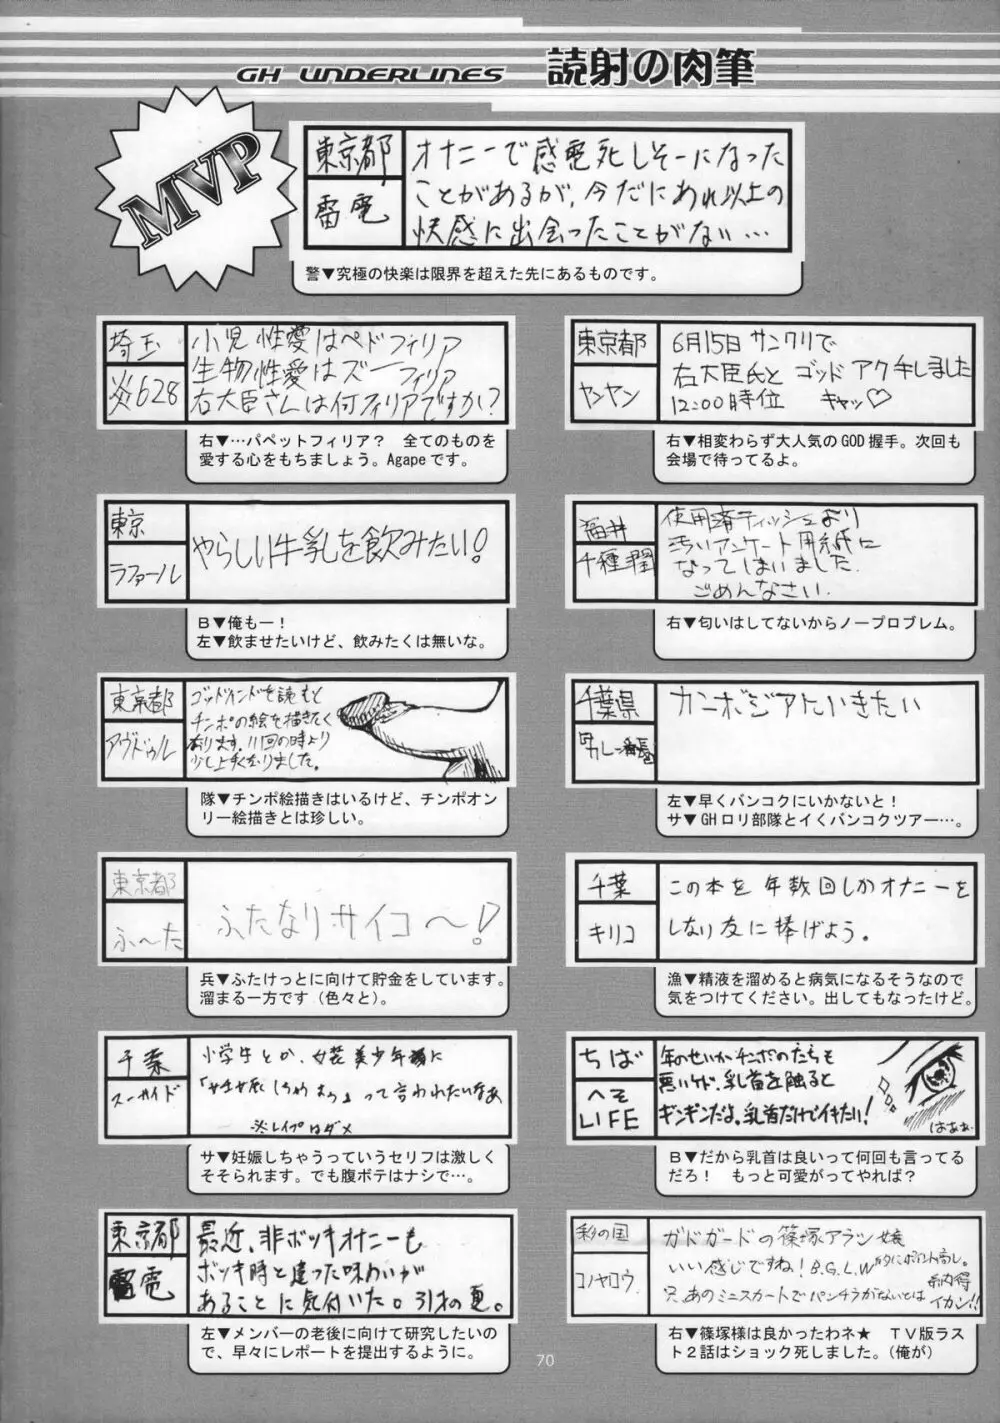 GH UNDERLINES 読射の肉筆
MVP
東京都
雷電
オナニーで感電死しそーになった
ことがあるが、今だにあれ以上の
快感に出会ったことがない…
警▼究極の快楽は限界を超えた先にあるものです。
埼玉
炎628
小児性愛はペドフィリア
生物性愛はズーフィリア
右大臣さんは何フィリアですか?
右▼…パペットフィリア? 全てのものを
愛する心をもちましょう。Agapeです。
東京都
ヤンヤン
6月15日サンクリで
右大臣氏とゴッドアク手しました
12:00時位 キャッ♡
右▼相変わらず大人気のGOD握手。次回も
会場で待ってるよ。
東京
ラファール
やらしい牛乳を飲みたい!
B▼俺もー!
左▼飲ませたいけど、飲みたくは無いな。
福井
千種 潤
使用済ティッシュより
汚いアンケート用紙に
なってしまいました。
ごめんなさい。
右▼匂いはしてないからノープロブレム。
東京都
アヴドゥル
ゴッドハンドを読むと
チンポの絵を描きたく
なります。11回の時より
少し上手くなりました。
隊▼チンポ絵描きはいるけど、チンポオン
リー絵描きとは珍しい。
東京都
ふ〜た
ふたなりサイコ〜!
兵▼ふたけっとに向けて貯金をしています。
溜まる一方です(色々と)。
千葉
キリコ
この本を年数回しかオナニーを
しない友に捧げよう。
漁▼精液を溜めると病気になるそうなので
気をつけてください。出してもなったけど。
ちば
へそLIFE
年のせいかチンポのたちも
悪いけど、乳首を触ると
ギンギンだよ。乳首だけでイキたい!
はぁぁ..
B▼だから乳首は良いって何回も言ってる
だろ! もっと可愛がってやれば?
東京都
雷電
最近、非ボッキオナニーも
ボッキ時と違った味わいが
あることに気付いた。31才の夏。
左▼メンバーの老後に向けて研究したいの
で、早々にレポートを提出するように。
彩の国
コノヤロウ
ガドガードの篠塚アラン嬢
いい感じですね!B.G.L.W的にポイント高し。
只、あのミニスカートでパンチラがないとは納得
イカン!!
右▼篠塚様は良かったわネ★ TV版ラス
ト2話はショック死しました。(俺が)
70